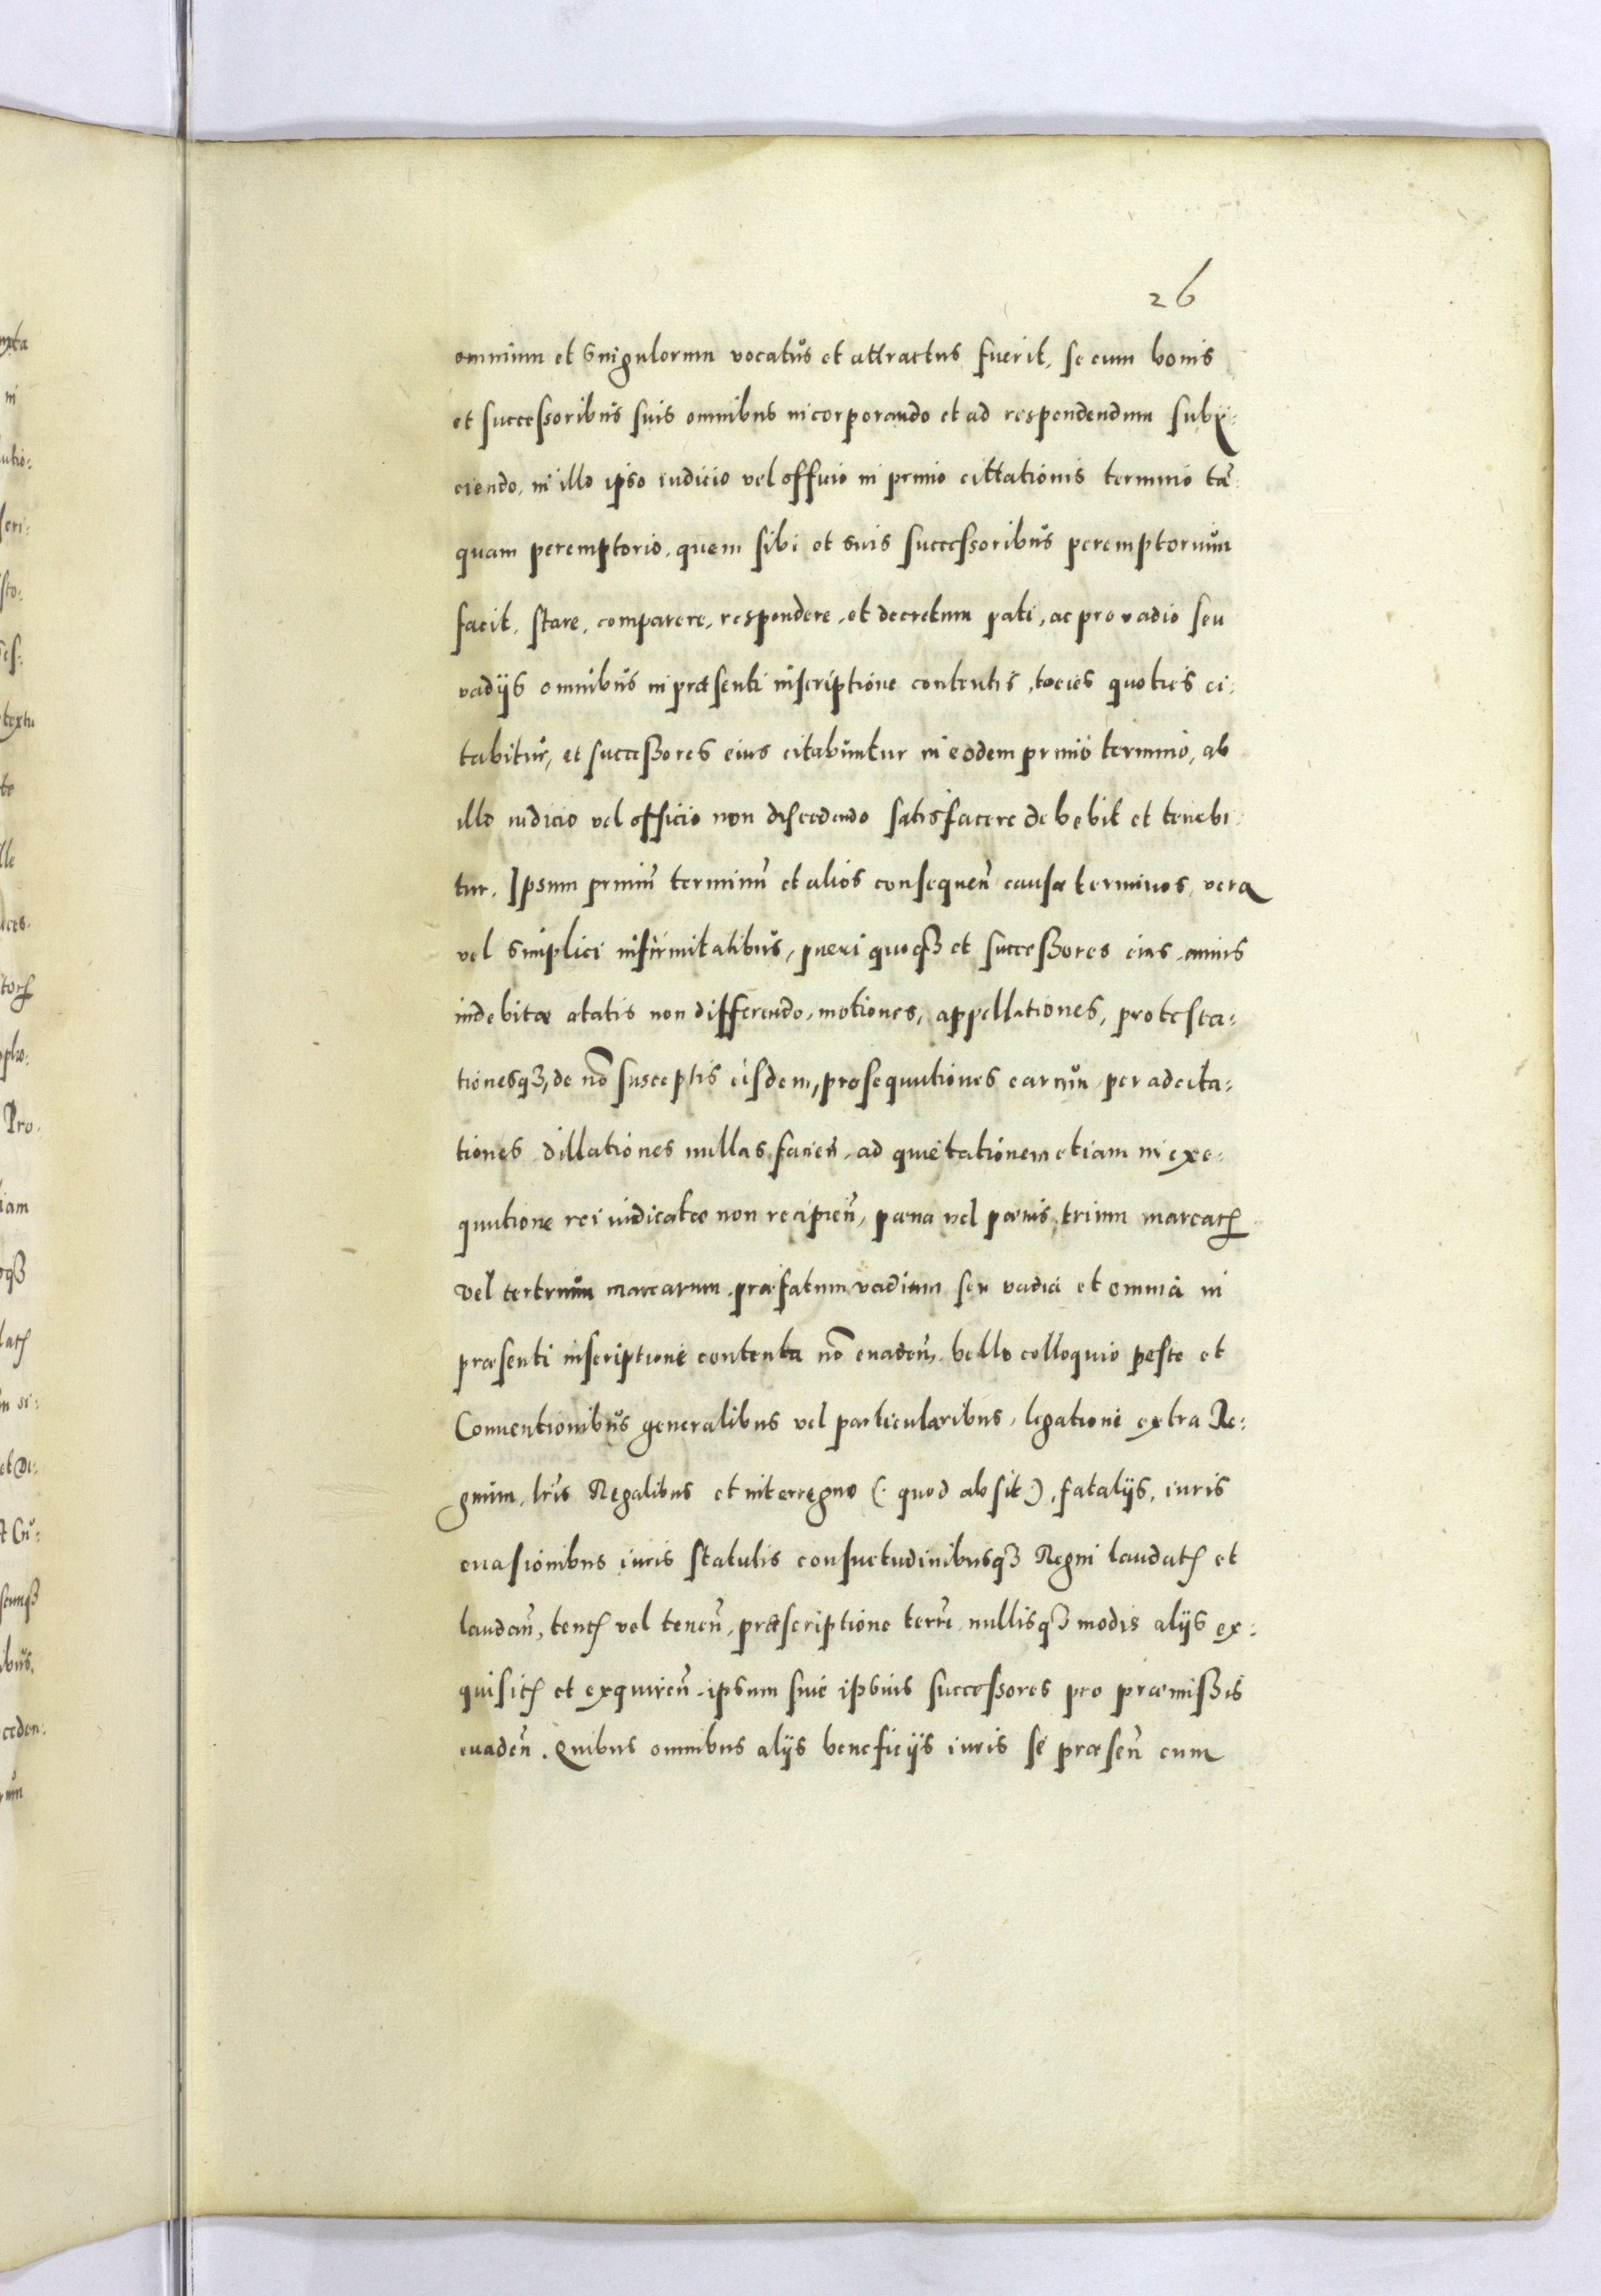 26
omnium et singulorum vocatus et attractus fuerit, se cum bonis
et successoribus suis omnibus incorporando et ad respondendum subij:
ciendo, in illo ipso iudicio vel officio in primo cittationis termino tā
quam peremptorio, quem sibi et suis successoribus peremptorium
facit, stare, comparere, respondere, et decretum pati, ac pro vadio seu
vadijs omnibus in præsenti inscriptione contentis, tocies quoties ci:
tabitur, et successores eius citabuntur in eodem primo termino, ab
illo iudicio vel officio non discedendo satisfacere debebit et tenebi:
tur. Ipsum primū terminū et alios consequeñ causæ terminos, vera
vel simplici infirmitatibus, pueri quoqȝ et successores eius annis
indebitæ ætatis non differendo, motiones, appellationes, protesta:
tionesqȝ, de nō susceptis eisdem, prosequutiones earum per adcita:
tiones dillationes nullas facieñ, ad quietationem etiam in exe:
quutione rei iudicatæ non recipieñ, pæna vel pænis, trium marcarꝝ
vel tertrium marcarum, præfatum vadium seu vadia et omnia in
præsenti inscriptione contenta nō euadeñ, bello colloquio peste et
Conuentionibus generalibus vel particularibus, legatione extra Re:
gnum, lr̄is Regalibus et interregno (: quod absit :), fatalijs, iuris
euasionibus iuris statutis consuetudinibusqȝ Regni laudatꝭ et
laudañ, tentꝭ vel teneñ, præscriptione terrē nullisqȝ modis alijs ex:
quisitꝭ et exquireñ, ipsum siue ipsius successores pro præmissis
euadeñ. Quibus omnibus alijs beneficijs iuris se præseñ cum